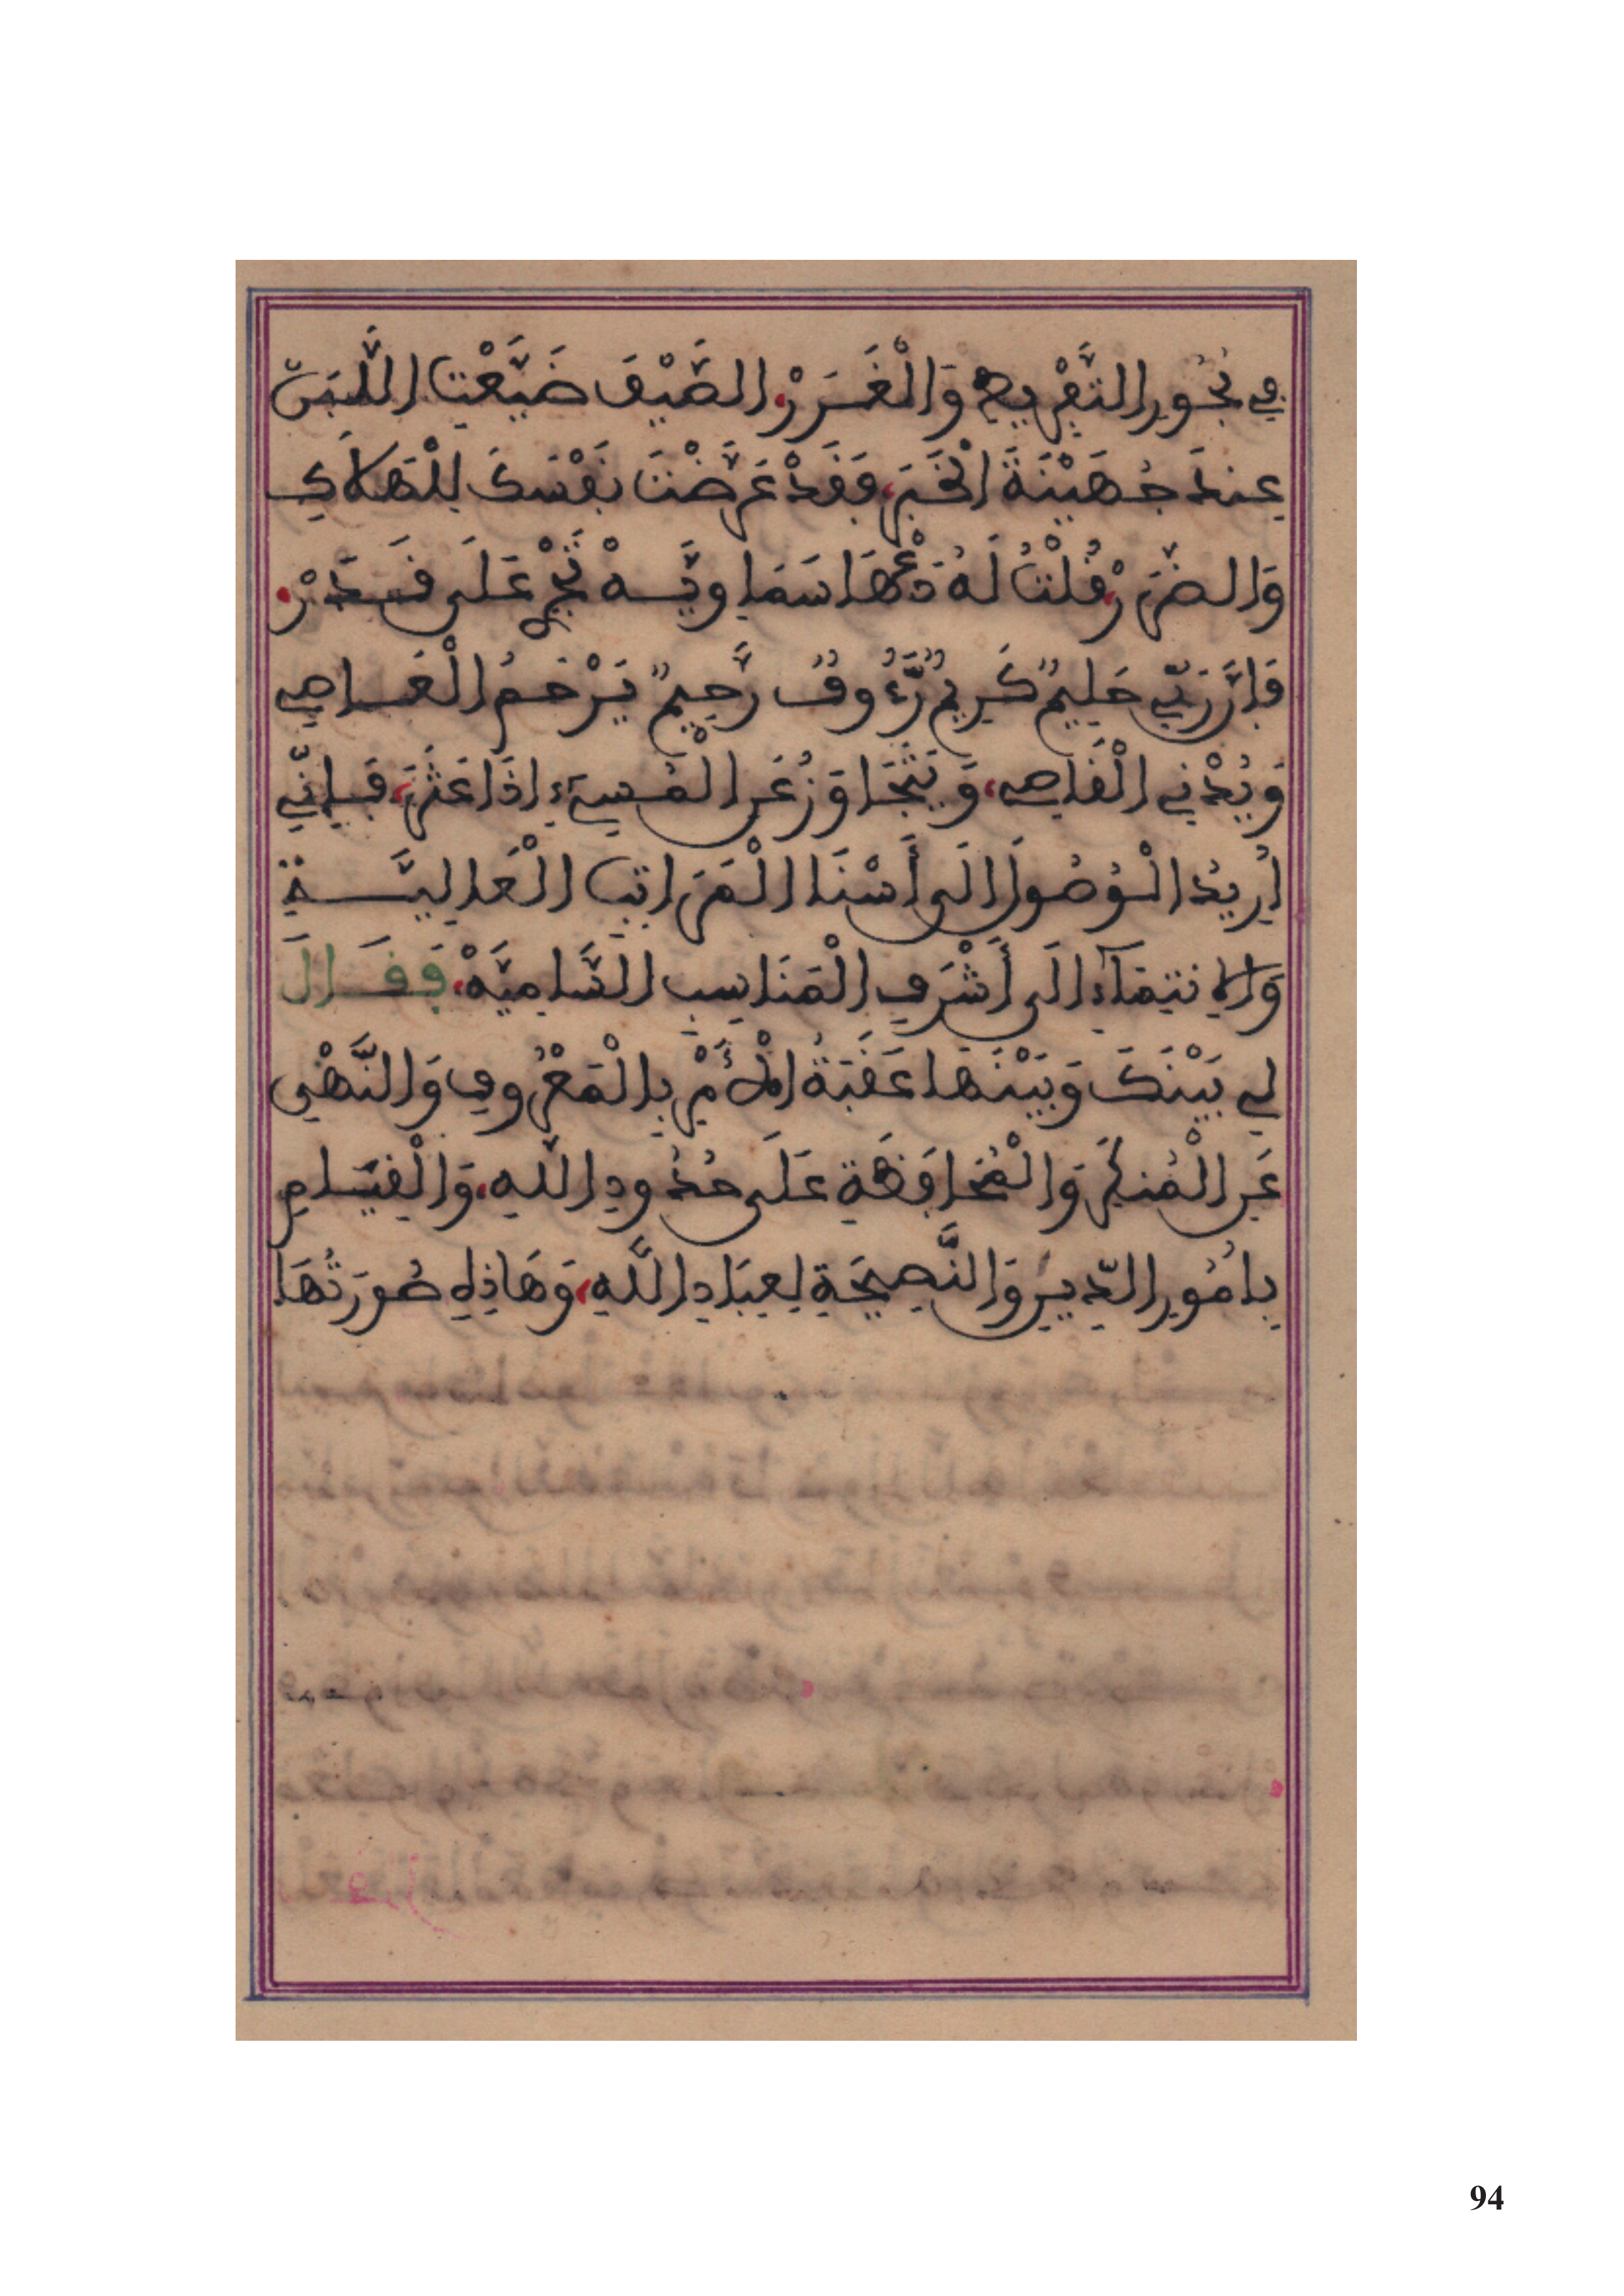 في بُحُورِ التَّفْرِيطِ وَالْغَرَرْ، الصَّيْفَ ضَيَّعْتِ اللَّبَنْ
عِندَ جُهَيْنَةَ الْخَبَرْ، فَقَدْ عَرَّضْتَ نَفْسَكَ لِلْهَلَاكِ
وَالضَّرَرْ، قُلْتُ لَهُ دَعْهَا سَمَاوِيَّـةْ تَجْرِ عَلَى قَـدَرْ،
فَإِنَّ رَبِّي حَلِيمٌ كَرِيمٌ رَّءُوفٌ رَّحِيمٌ يَرْحَمُ الْعَـاصِي
وَيُدْنِي الْقَاصِي، وَيَتَجَاوَزُ عَنِ الْمُسِيءِ إِذَا عَثَرَ، فَـإِنِّي
أُرِيدُ الْوُصُولَ إِلَى أَسْنَا الْمَرَاتِبِ الْعَالِيَّـةِ
وَالِانتِمَاءِ إِلَى أَشْرَفِ الْمَنَاسِبِ السَّامِيَّةْ، فَقَـالَ
لِي بَيْنَكَ وَبَيْنَهَا عَقَبَةُ الْأَمْرِ بِالْمَعْرُوفِ وَالنَّهْيِ
عَنِ الْمُنكَرِ وَالْمُحَافَظَةِ عَلَى حُدُودِ اللَّهِ، وَالْقِيَـامِ
بِأُمُورِ الدِّينِ وَالنَّصِيحَةِ لِعِبَادِ اللَّهِ، وَهَاذِهِ صُورَتُهَا
94